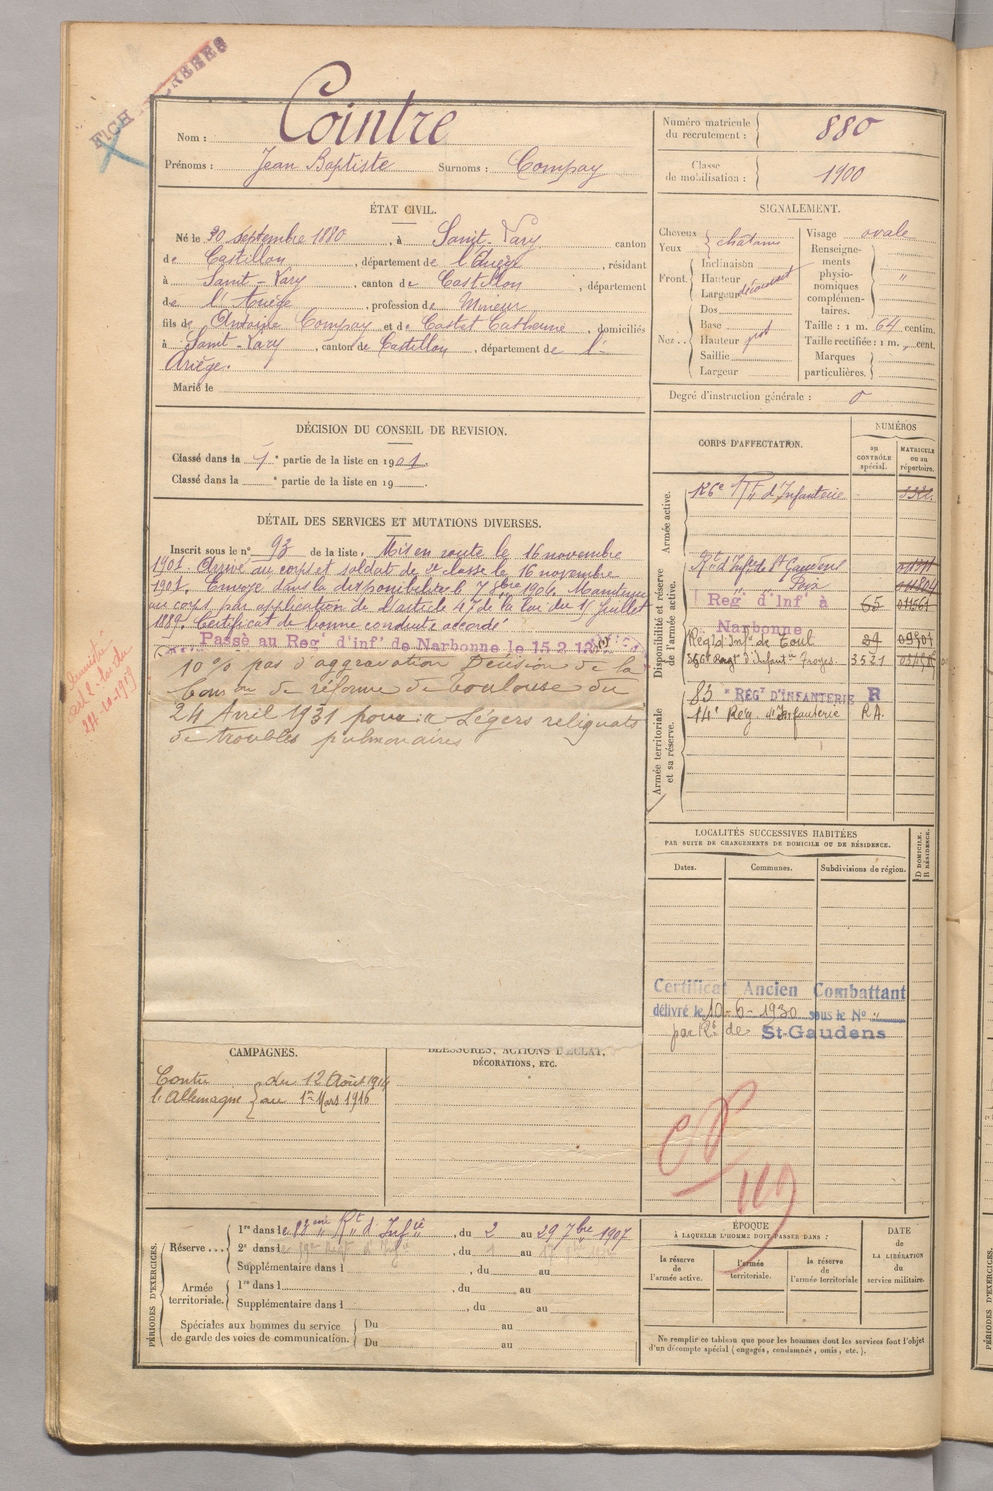 Nom : Cointre
Prénoms : Jean Baptiste Surnoms : Compay
Numéro matricule du recrutement : 880
Classe de mobilisation : 1900
ÉTAT CIVIL.
Né le 30 septembre 1880, à Saint-Lary canton
de Castillon, département de l'Ariège, résidant
à Saint-Lary, canton de Castillon, département
de l'Ariège, profession de Mineur
fils de Antoine Compay et de Castet Catherine, domiciliés
à Saint-Lary, canton de Castillon, département de l'
Ariège.
Marié le
SIGNALEMENT.
Cheveux
Yeux châtains
Inclinaison
Front. Hauteur
Largeur découvert
Dos
Base
Nez Hauteur
Saillie
Largeur
Visage ovale
Renseignements physionomiques complémentaires. "
Taille : 1 m. 64 centim.
Taille rectifiée : 1 m. „ cent.
Marques particulières.
Degré d'instruction générale : 0
DÉCISION DU CONSEIL DE REVISION.
Classé dans la 1e partie de la liste en 1901.
Classé dans la e partie de la liste en 19
DÉTAIL DES SERVICES ET MUTATIONS DIVERSES.
Inscrit sous le n° 93 de la liste, Mis en route le 16 novembre
1901. Arrivé au corps et soldat de 2e classe le 16 novembre
1901. Envoyé dans la disponibilité le 7bre 1904. Maintenu
au corps par application de l'article 47 de la loi du 15 juillet
1889. Certificat de bonne conduite accordé
Passé au Reg' d'inf' de Narbonne le 15.2.12
10 % pas d'aggravation Décision de la
Com on de réforme de Toulouse du
24 Avril 1931 pour : Légers reliquats
de troubles pulmonaires
Amnistié
art 2 loi du
24-10-1919
CORPS D'AFFECTATION.
NUMÉROS
au CONTRÔLE spécial.
MATRICULE ou au répertoire.
Armée active.
126e d'Infanterie
Disponibilité et réserve de l'armée active.
Rt d'Inf. de St Gaudens
Foix
Reg' d'Inf' à 65
Narbonne
Rég' d'Inf. de Toul
356e Regt d'Infantrie Troyes. 3521
Armée territoriale et sa réserve.
83 e RÉG' D'INFANTERIE R
14e Rég. d'Infanterie R.A.
LOCALITÉS SUCCESSIVES HABITÉES
PAR SUITE DE CHANGEMENTS DE DOMICILE OU DE RÉSIDENCE.
Dates. Communes. Subdivisions de région.
D DOMICILE.
R RÉSIDENCE.
Certificat Ancien Combattant
délivré le 10-6-1930 sous le N° "
par R.t de St-Gaudens
CAMPAGNES.
BLESSURES, ACTIONS D'ÉCLAT,
DÉCORATIONS, ETC.
Contre du 12 Août 1914
l'Allemagne au 1er Mars 1916
PÉRIODES D'EXERCICES.
Réserve... 1re dans le 83eme Rt d'Infie, du 2 au 29 7bre 1907
2e dans le, du 1 au
Supplémentaire dans l, du au
Armée territoriale. 1re dans l, du au
Supplémentaire dans l, du au
Spéciales aux hommes du service Du au
de garde des voies de communication. Du au
ÉPOQUE
À LAQUELLE L'HOMME DOIT PASSER DANS :
la réserve de l'armée active.
l'armée territoriale.
la réserve de l'armée territoriale
DATE de LA LIBÉRATION du service militaire.
Ne remplir ce tableau que pour les hommes dont les services font l'objet
d'un décompte spécial (engagés, condamnés, omis, etc.).
PÉRIODES D'EXERCICES.